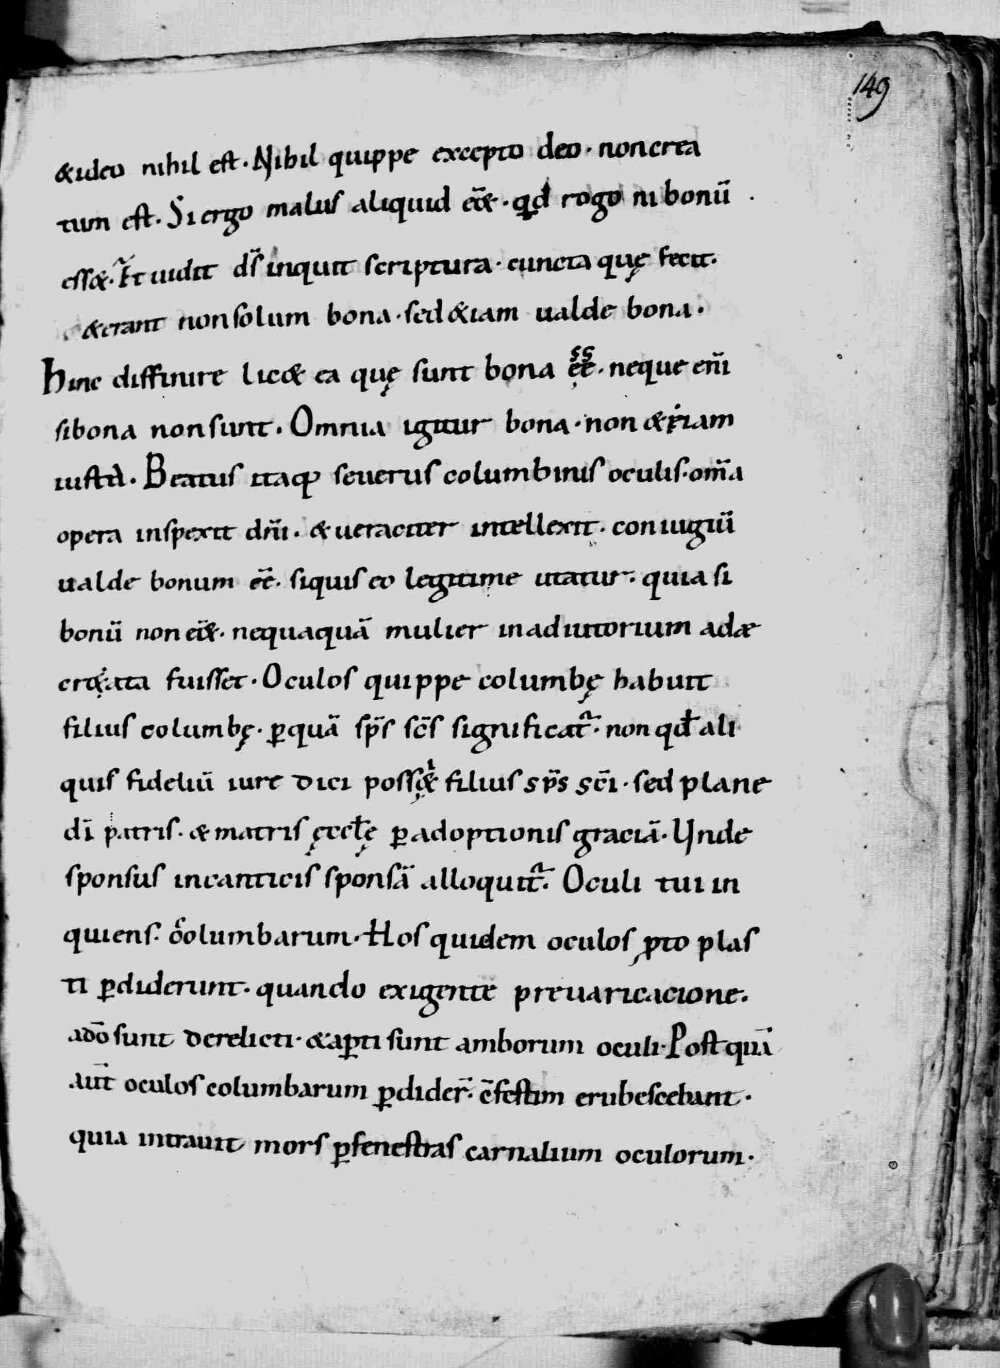 149
&ideo nihil est. Nihil quippe excepto deo. non crea
tum est. Si ergo malus aliquid eēt. qd rogo ni bonū
ess&. Et uidit ds̄ inquit scriptura. cuncta quę fecit.
& erant non solum bona. sed &iam ualde bona.
hinc diffinire lic& ea quę sunt bona ee. neque eni̅
si bona non sunt. Omnia igitur bona. non &iam
iusta. Beatus itaq; seuerus columbinis oculis. om̄a
opera inspexit dn̄i. & ueraciter intellexit. coniugiū
ualde bonum eē. siquis eo legitime utatur. quia si
bonū non e&̄. nequaquā mulier in adiutorium adæ
creata fuisset. Oculos quippe columbę habuit
filius columbę. ꝑ quā sp̄s sc̄s significat̃. non qđ ali
quis fideliū iure dici poss& filius sp̄s sc̄i. sed plane
dī patris. & matris ęccłę ꝑ adoptionis graciā. Unde
sponsus in canticis sponsā alloquit̃. Oculi tui in
quiens. columbarum. Hos quidem oculos ꝓto plas
ti ꝑdiderunt. quando exigente preuaricacione.
a dō sunt derelicti. & aꝑti sunt amborum oculi. Post quā
aut̄ oculos columbarum ꝑdider̄. c̄festim erubescebant.
quia intrauit mors ꝑ fenestras carnalium oculorum.